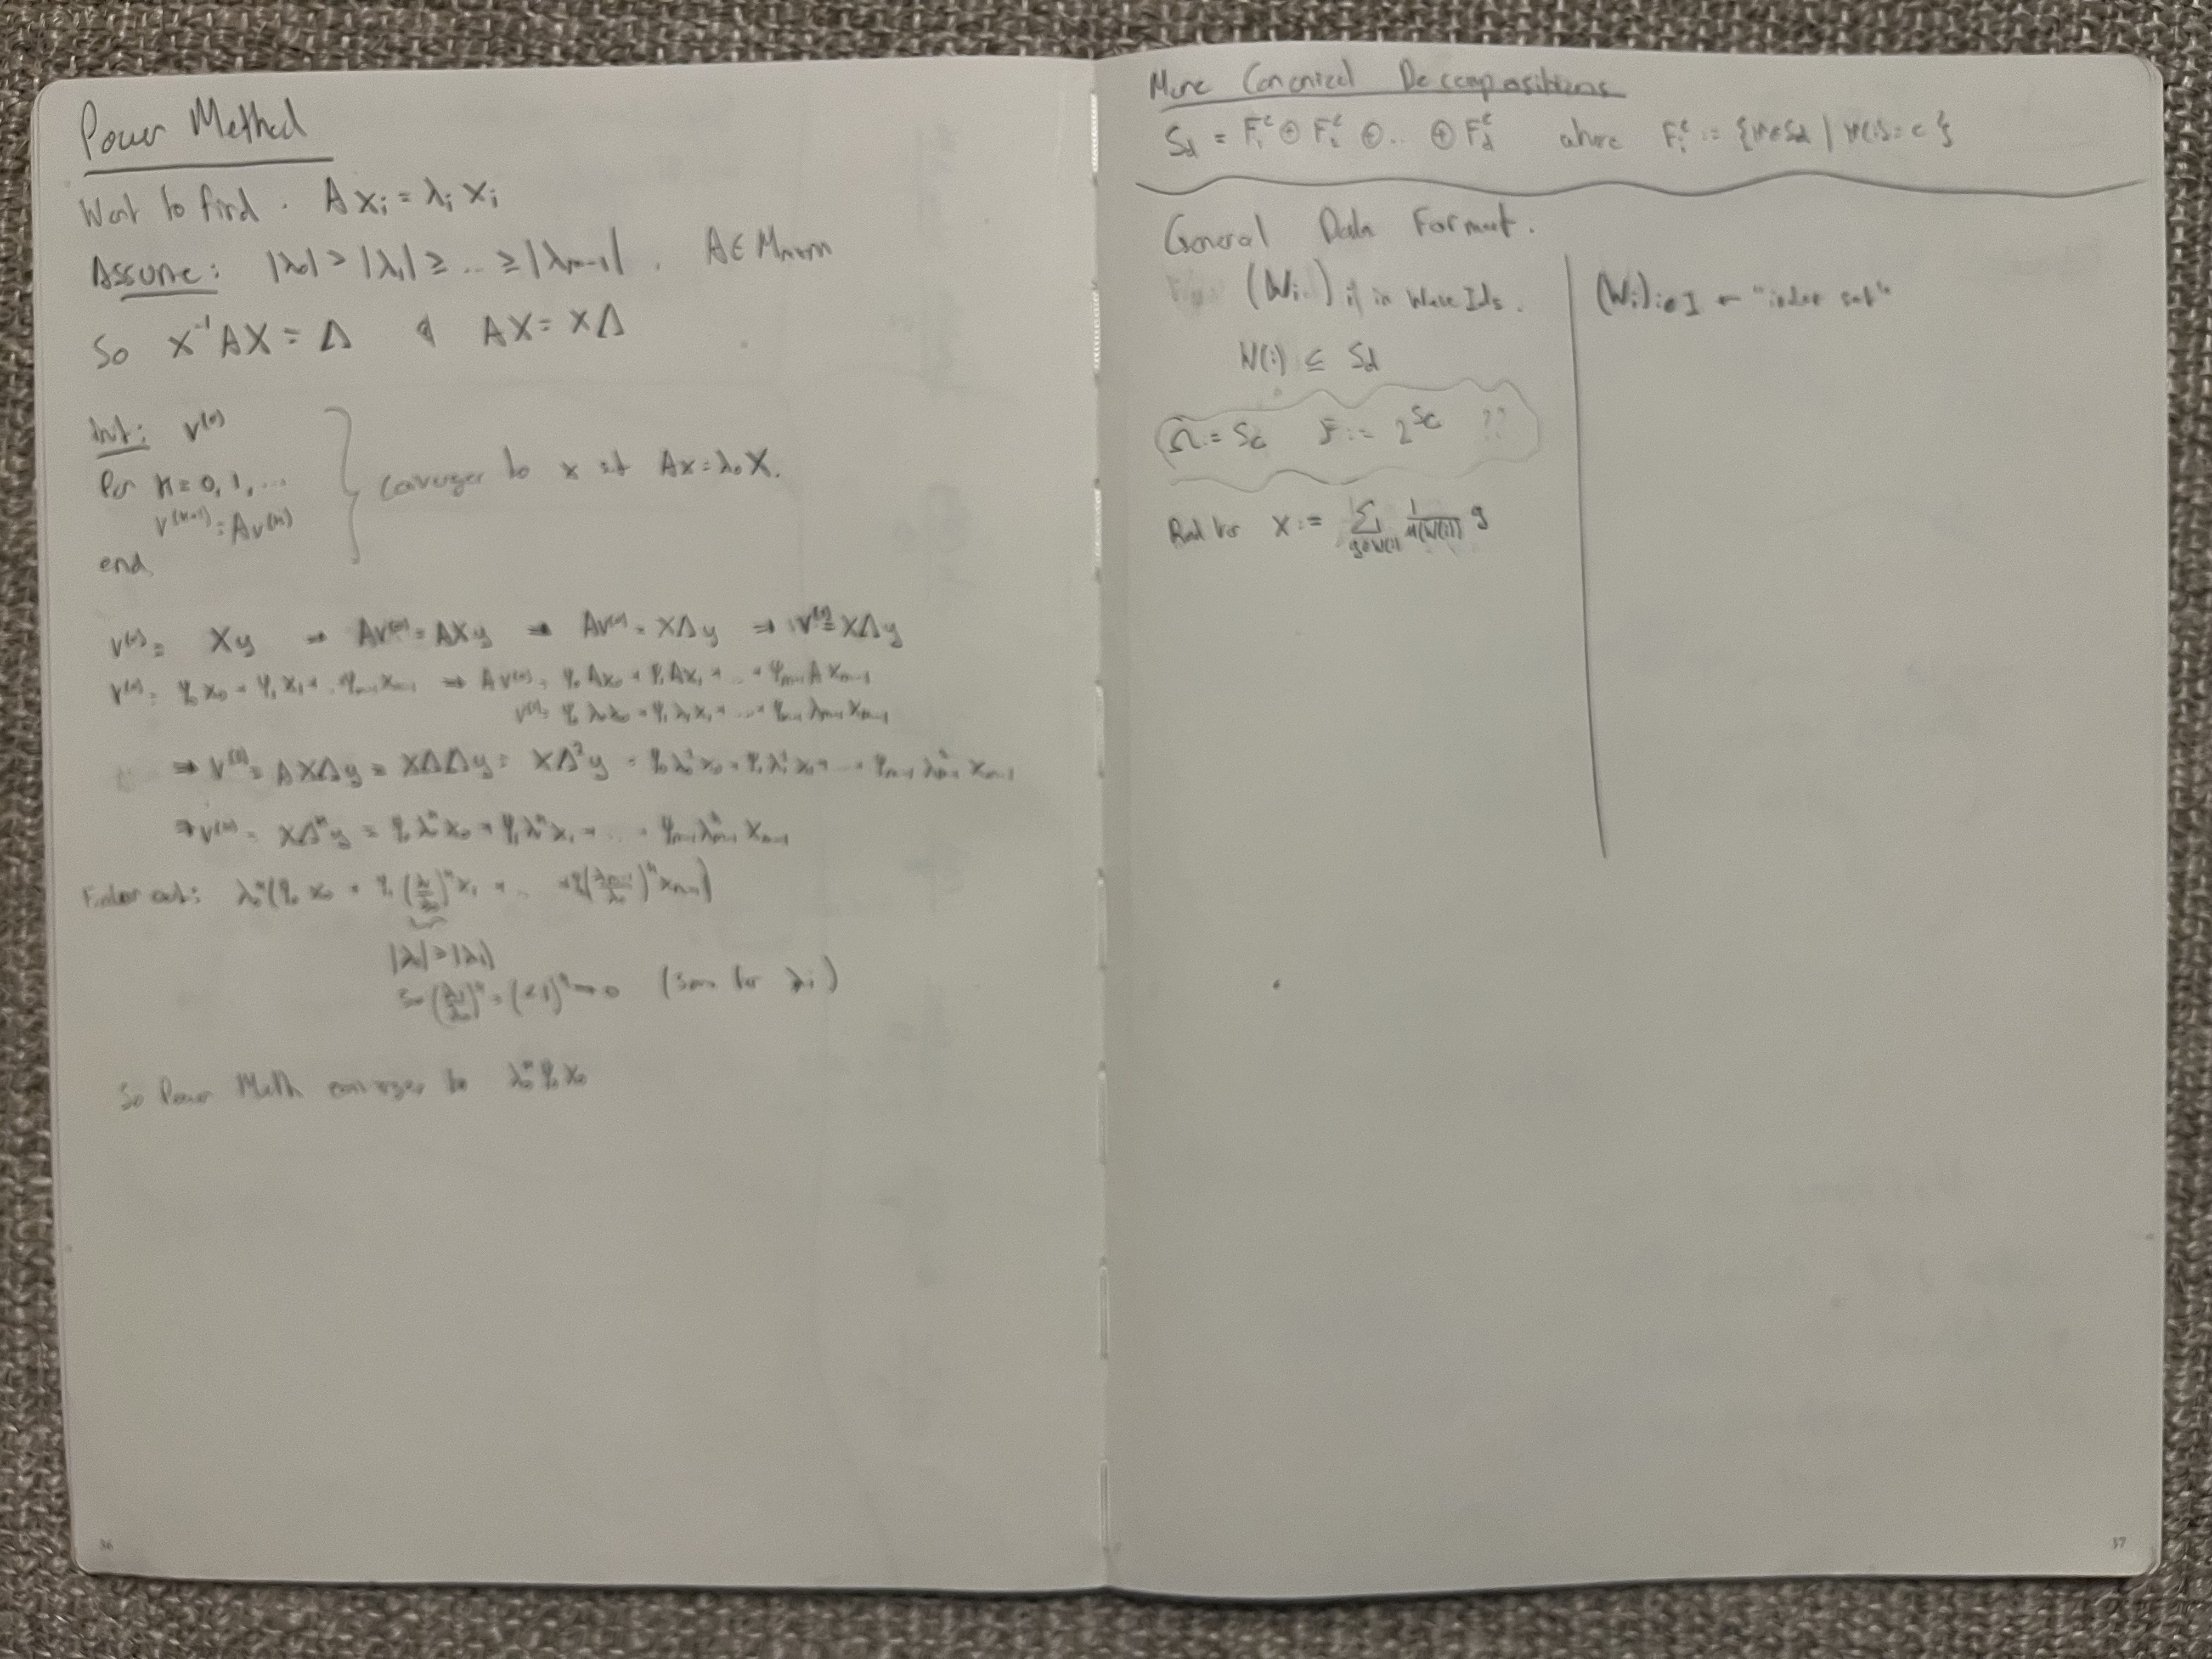 Power Method
Want to find. A xᵢ = λᵢ xᵢ
Assume: |λ₀| > |λ₁| ≥ ... ≥ |λₘ₋₁|, A ∈ Mₘₓₘ
So X⁻¹AX = Λ & AX = XΛ
Init: v⁽⁰⁾
for k=0,1,...
v⁽ᵏ⁺¹⁾ = Av⁽ᵏ⁾
end
Converges to x st Ax = λ₀x.
v⁽⁰⁾ = Xy → Av⁽⁰⁾ = AXy ⇒ Av⁽⁰⁾ = XΛy ⇒ v⁽¹⁾ = XΛy
v⁽⁰⁾ = φ₀x₀ + φ₁x₁ + .. φₘ₋₁xₘ₋₁ ⇒ Av⁽⁰⁾ = φ₀Ax₀ + φ₁Ax₁ + ... + φₘ₋₁Axₘ₋₁
v⁽¹⁾ = φ₀λ₀x₀ + φ₁λ₁x₁ + ... + φₘ₋₁λₘ₋₁xₘ₋₁
⇒ v⁽²⁾ = AXΛy = XΛΛy = XΛ²y = φ₀λ₀²x₀ + φ₁λ₁²x₁ + ... + φₘ₋₁λₘ₋₁²xₘ₋₁
⇒ v⁽ᵏ⁾ = XΛᵏy = φ₀λ₀ᵏx₀ + φ₁λ₁ᵏx₁ + ... + φₘ₋₁λₘ₋₁ᵏxₘ₋₁
Factor out: λ₀ᵏ(φ₀x₀ + φ₁(λ₁/λ₀)ᵏx₁ + .. + φ(λₘ₋₁/λ₀)ᵏxₘ₋₁)
|λ₀| > |λ₁|
so (λ₁/λ₀)ᵏ = (<1)ᵏ → 0 (same for λᵢ)
So Power Meth converges to λ₀ᵏφ₀x₀
36
More Canonical Decompositions
S_d = F₁ᶜ ⊕ F₂ᶜ ⊕ .. ⊕ F_dᶜ where Fᵢᶜ := {π∈S_d | π(i) = c}
General Data Format.
(Wᵢ) if in
N(i) ⊆ S_d
(Wᵢ)ᵢ∈I ← "index set"
Ω := Sc F := 2^Sc ??
x := Σ 1/|N(i)| g
37